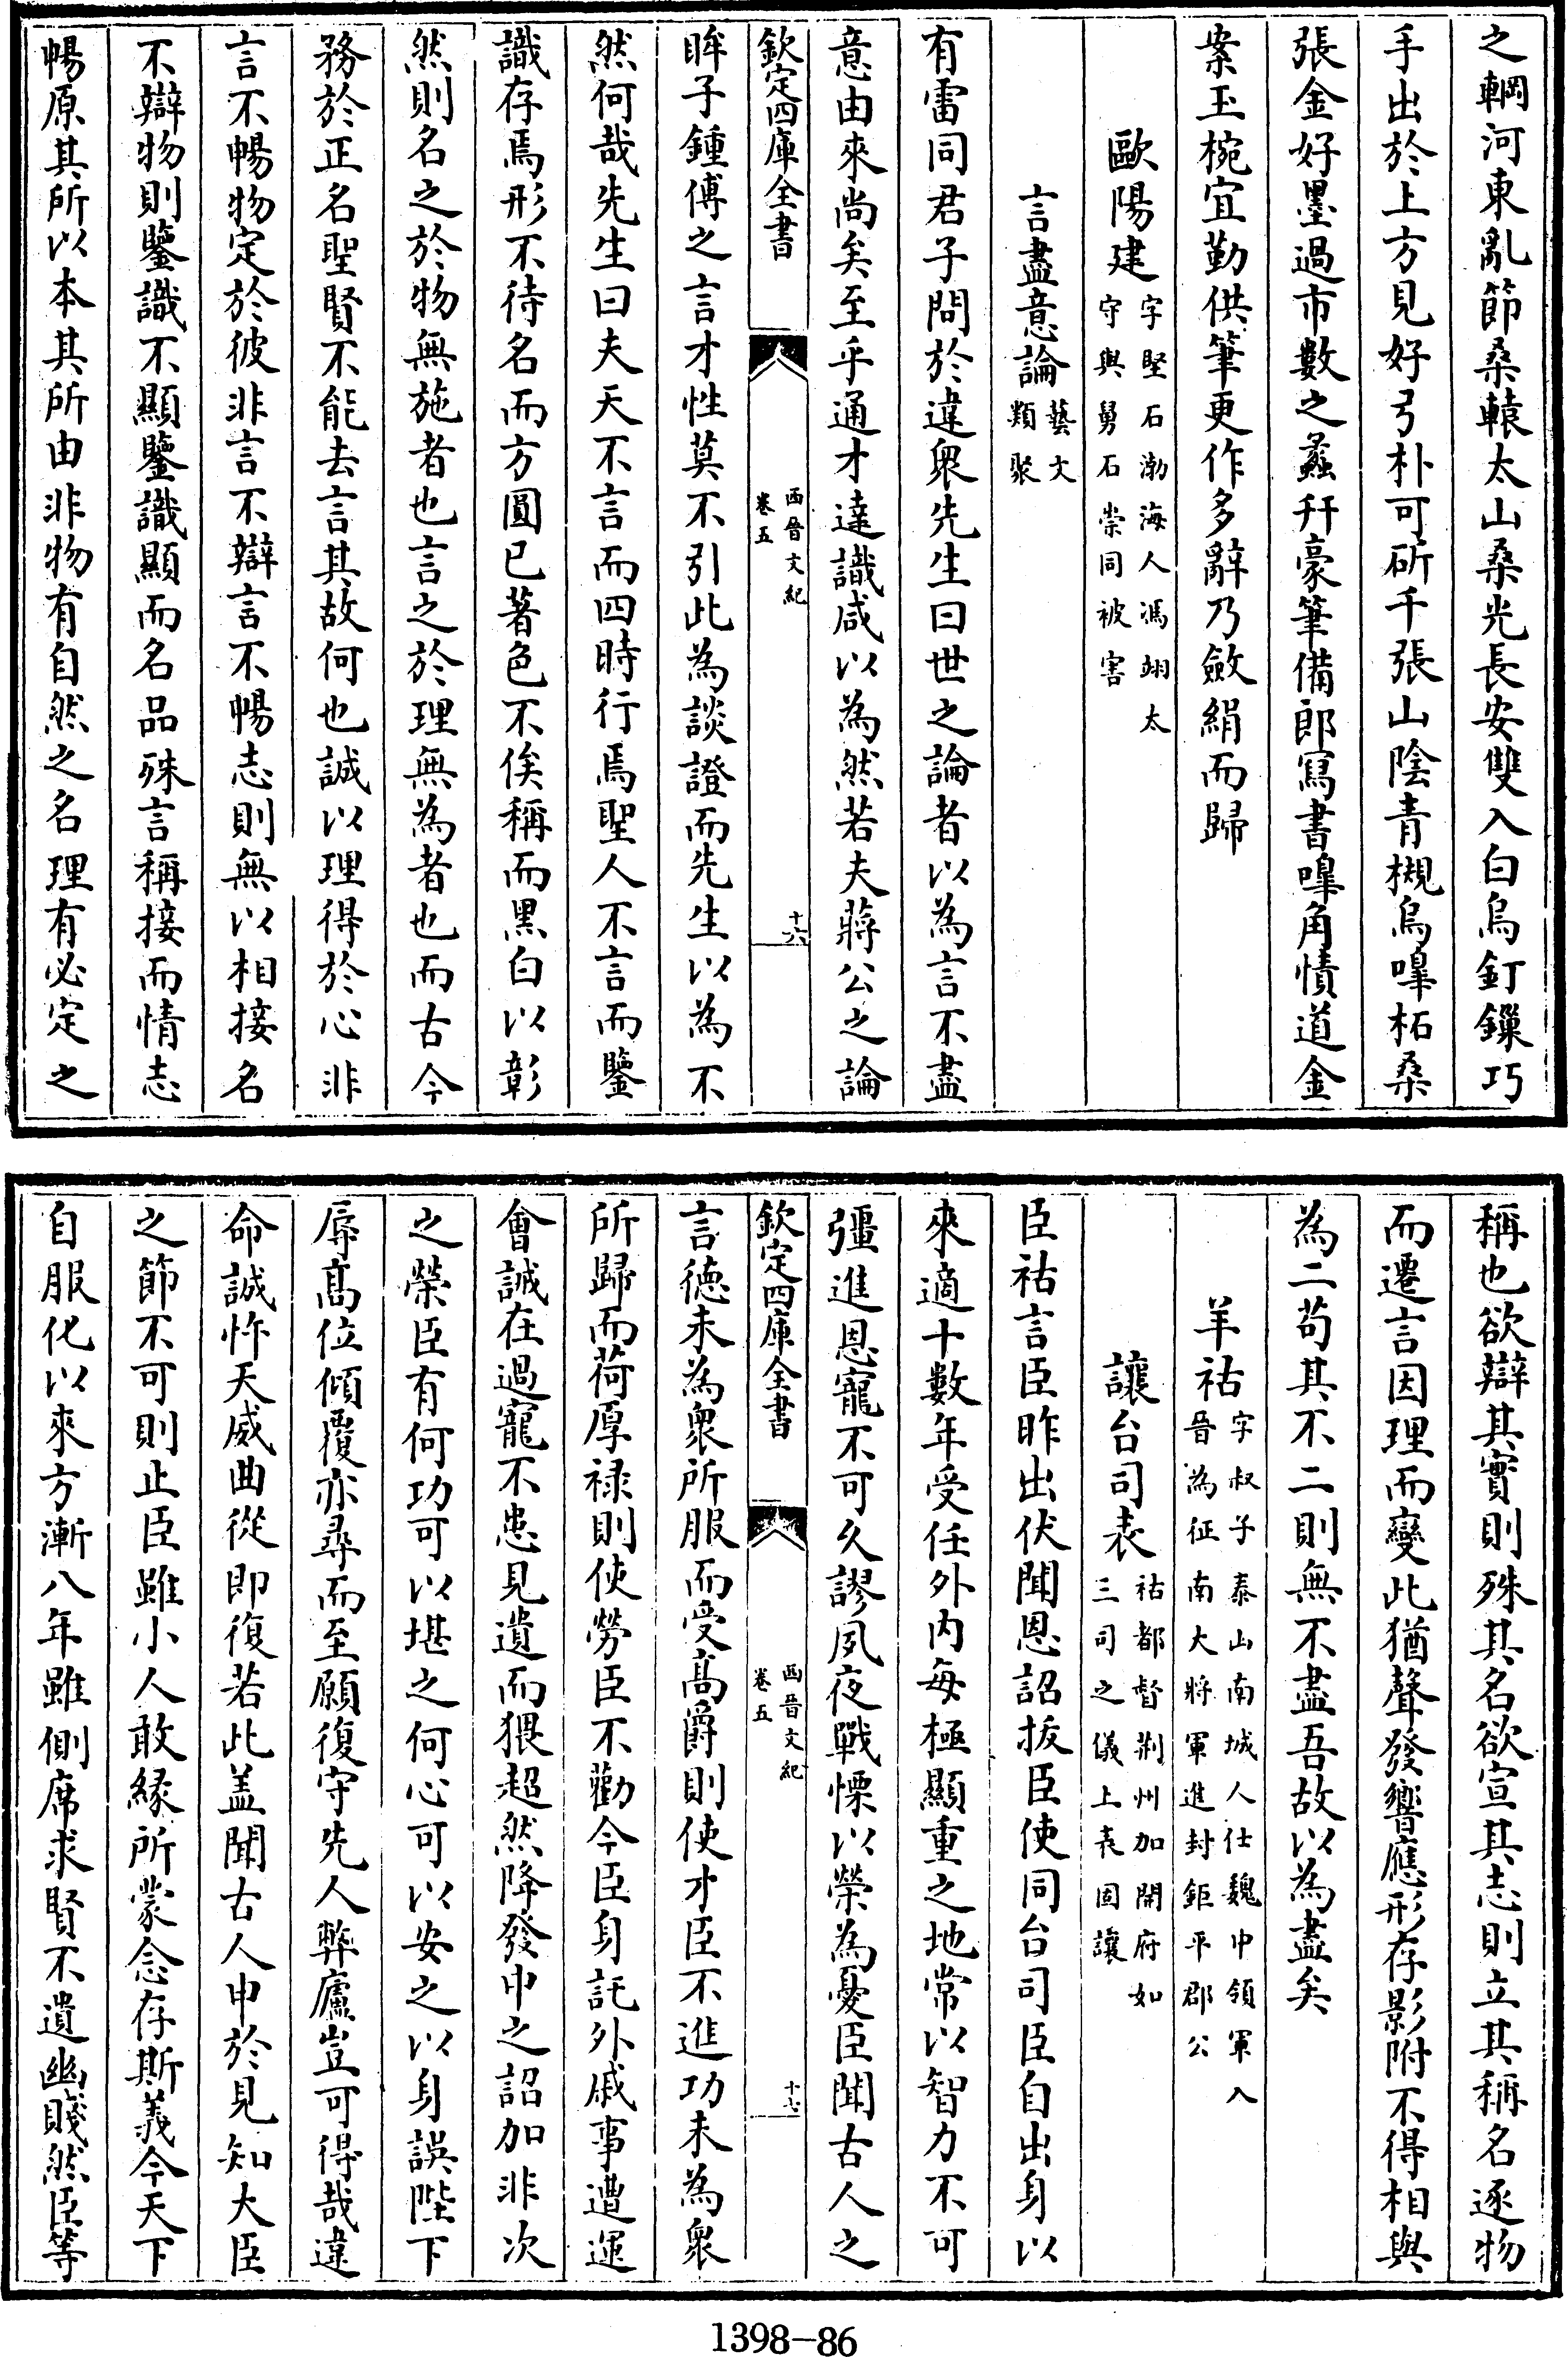 之輞河東亂節桑轅太山桑光長安雙入白烏釘鏁巧
手出於上方見好弓朴可斫千張山陰青槻烏嘷柘桑
張金好墨過市數之蠡幷豪筆備郎寫書嘷角幘道金
案玉椀宜勤供筆更作多辭乃斂絹而歸
歐陽建字堅石渤海人馮翊太
守與舅石崇同被害
言盡意論藝文
類聚
有雷同君子問於違衆先生曰世之論者以為言不盡
意由來尚矣至乎通才達識咸以為然若夫蔣公之論
欽定四庫全書
西晉文紀
卷五
十六
眸子鍾傅之言才性莫不引此為談證而先生以為不
然何哉先生曰夫天不言而四時行焉聖人不言而鑒
識存焉形不待名而方圓已著色不俟稱而黑白以彰
然則名之於物無施者也言之於理無為者也而古今
務於正名聖賢不能去言其故何也誠以理得於心非
言不暢物定於彼非言不辯言不暢志則無以相接名
不辯物則鑒識不顯鑒識顯而名品殊言稱接而情志
暢原其所以本其所由非物有自然之名理有必定之
稱也欲辯其實則殊其名欲宣其志則立其稱名逐物
而遷言因理而變此猶聲發響應形存影附不得相與
為二苟其不二則無不盡吾故以為盡矣
羊祜字叔子泰山南城人仕魏中領軍入
晉為征南大將軍進封鉅平郡公
讓台司表祜都督荆州加開府如
三司之儀上表固讓
臣祜言臣昨出伏聞恩詔拔臣使同台司臣自出身以
來適十數年受任外内每極顯重之地常以智力不可
彊進恩寵不可久謬夙夜戰慄以榮為憂臣聞古人之
欽定四庫全書
西晉文紀
卷五
十七
言德未為衆所服而受高爵則使才臣不進功未為衆
所歸而荷厚禄則使勞臣不勸今臣身託外戚事遭運
會誠在過寵不患見遺而猥超然降發中之詔加非次
之榮臣有何功可以堪之何心可以安之以身誤陛下
辱高位傾覆亦尋而至願復守先人弊廬豈可得哉違
命誠忤天威曲從即復若此盖聞古人申於見知大臣
之節不可則止臣雖小人敢緣所蒙念存斯義今天下
自服化以來方漸八年雖側席求賢不遺幽賤然臣等
1398-86